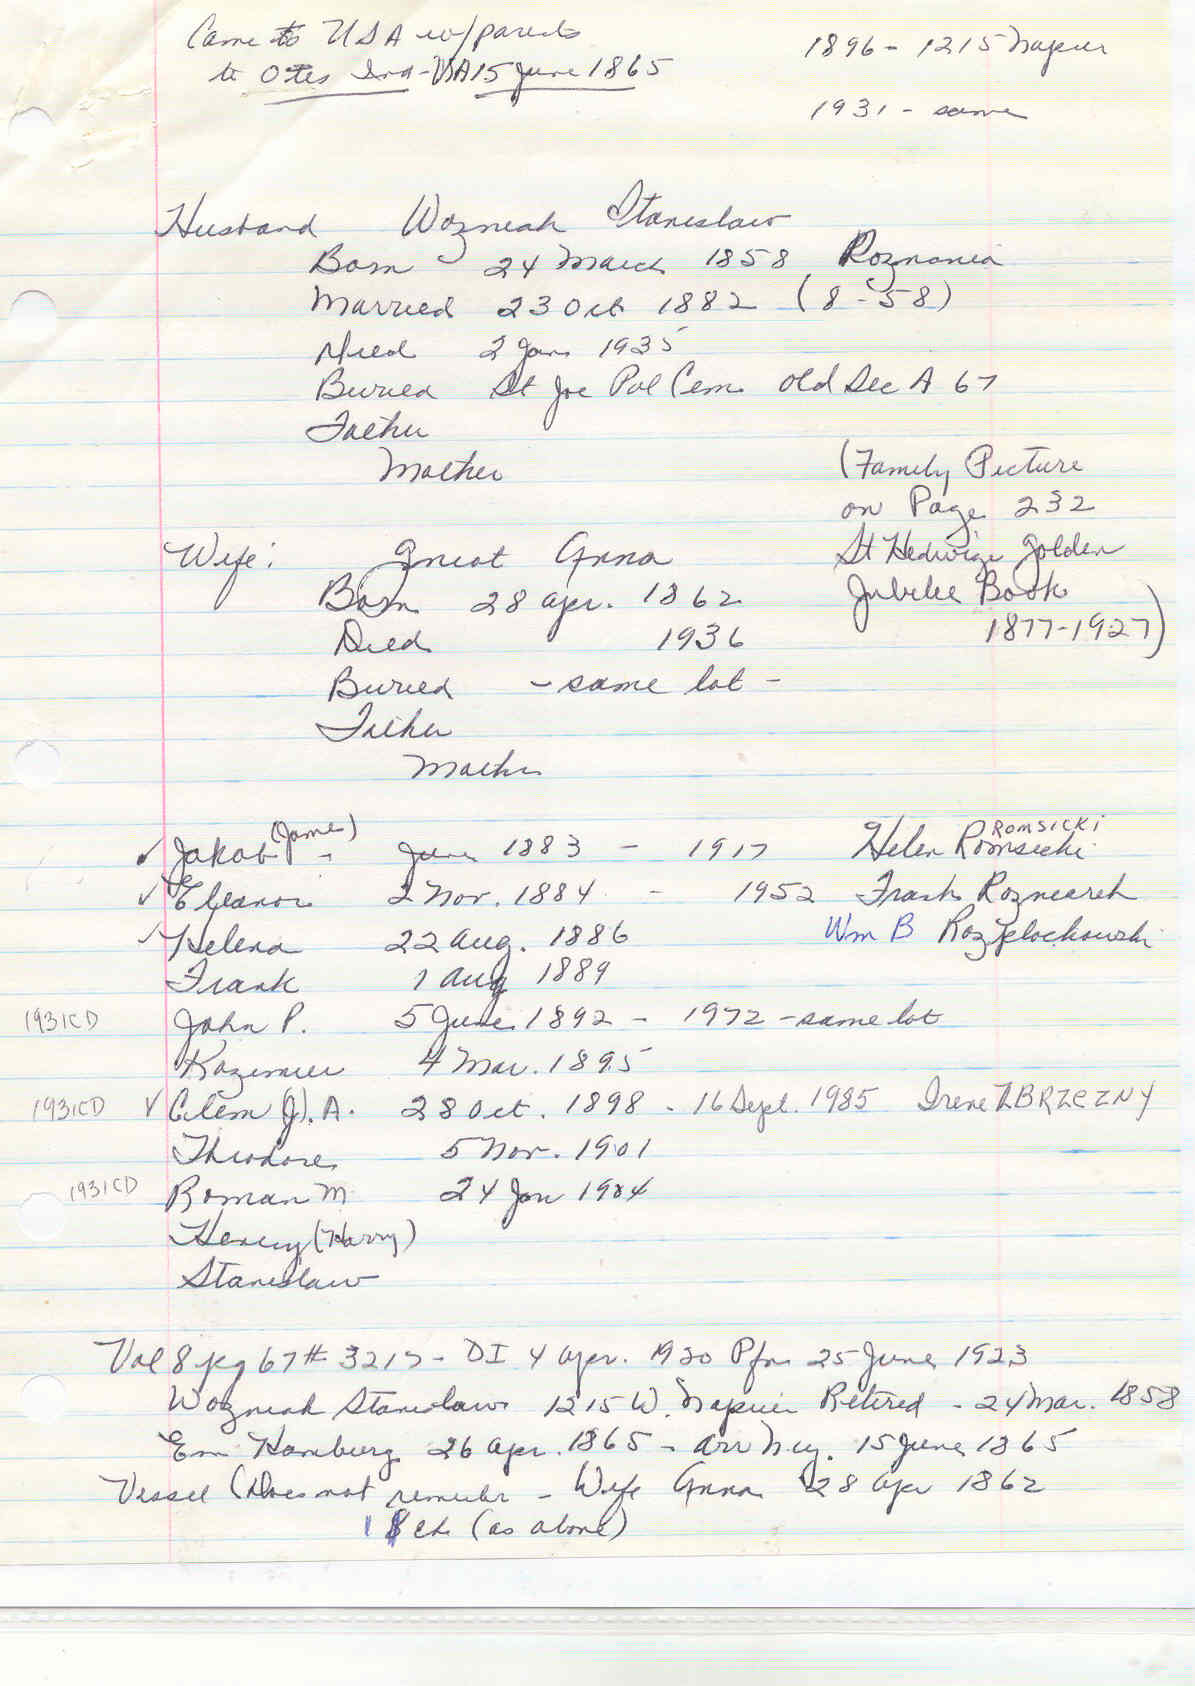 Came to USA w/parents
to Otis Ind - USA 15 June 1865
1896 - 1215 Napier
1931 - same
Husband Wozniak Stanislaw
Born 24 March 1858 Poznania
Married 23 Oct 1882 (8-58)
Died 2 Jan 1935
Buried St Joe Pol Cem. Old Sec A 67
Father
Mother
(Family Picture
on Page 232
St Hedwige Golden
Jubilee Book
1877-1927)
Wife: Gniot Anna
Born 28 Apr. 1862
Died 1936
Buried - same lot -
Father
Mother
✓ Jakob (James) - June 1883 - 1917 Helen Romsicki ROMSICKI
✓ Eleanor 2 Nov. 1884 - 1952 Frank
✓ Helena 22 Aug. 1886 Wm B
Frank 1 Aug 1889
1931CD John P. 5 June 1892 - 1972 - same lot
Kazimier 4 Mar. 1895
1931CD ✓ Clem (J). A. 28 Oct. 1898 - 16 Sept. 1985 Irene ZBRZEZNY
Theodore 5 Nov. 1901
1931CD Roman M. 24 Jan 1904
Henry (Harry)
Stanislaw
Vol 8 pg 67 # 3217 - DI 4 Apr. 1920 Pfn 25 June 1923
Wozniak Stanislaw 1215 W. Napier Retired - 24 Mar. 1858
Em Hamburg 26 Apr. 1865 - Arr N.Y. 15 June 1865
Vessel (Does not remember - Wife Anna 28 Apr 1862
ch (as above)